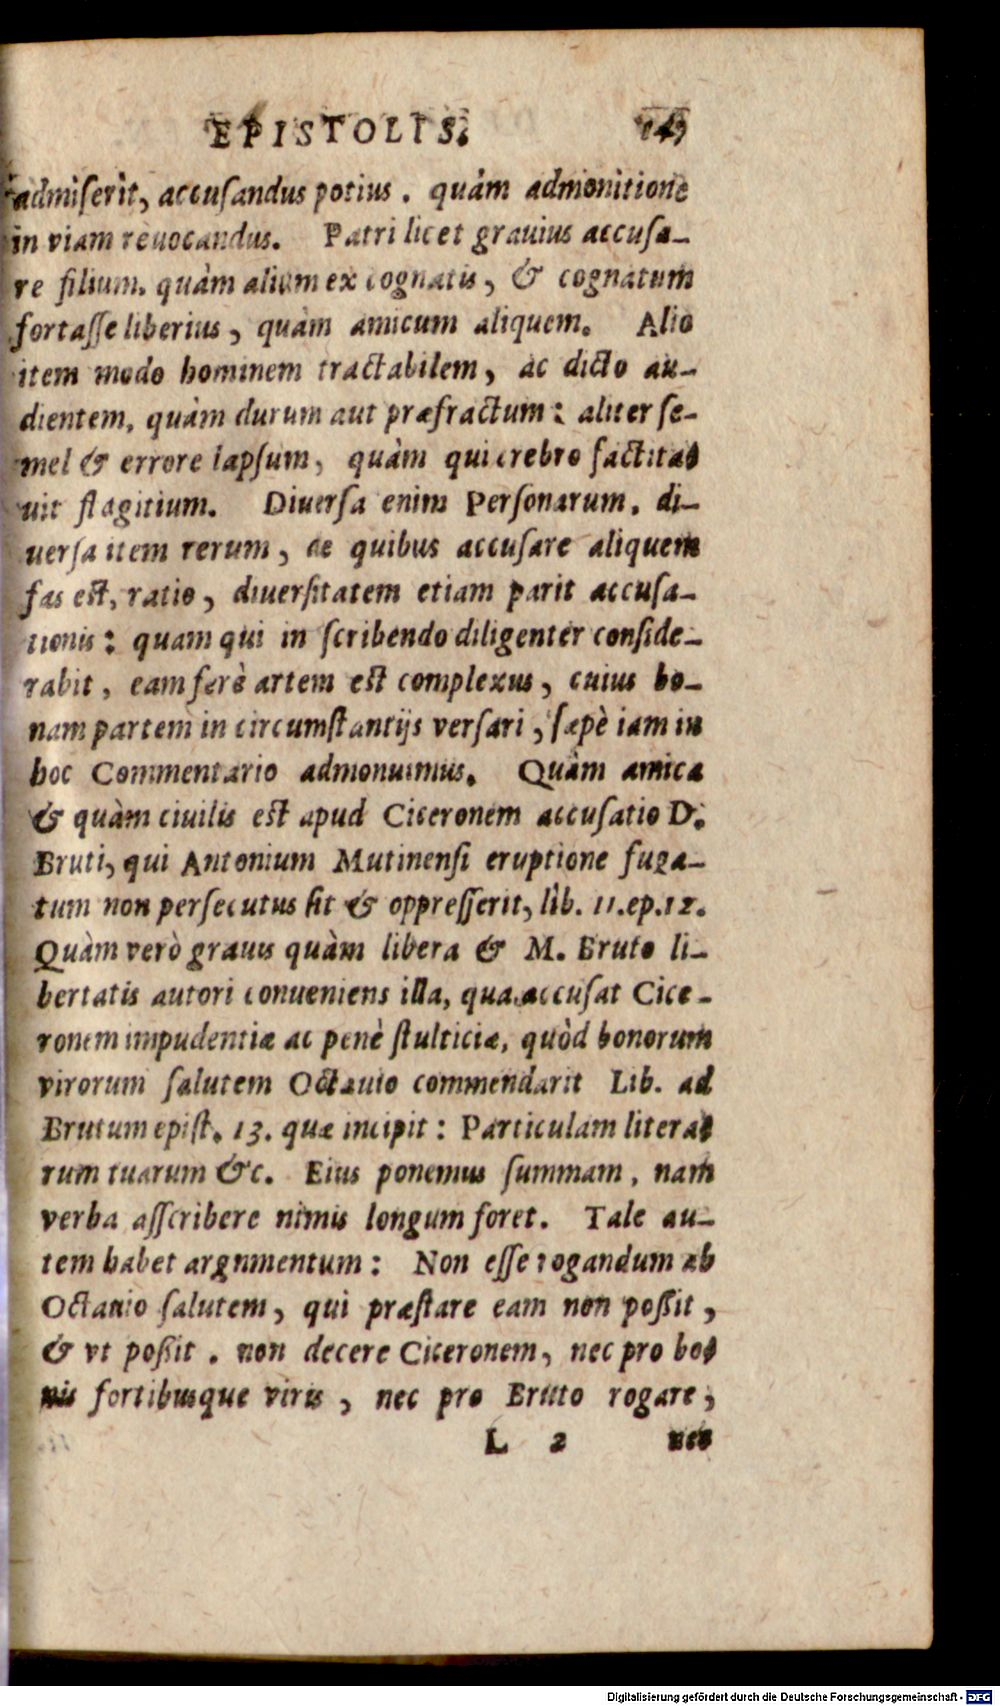 EPISTOLIS.
admiserit, accusandus potius. quàm admonitione
in viam reuocandus. Patri licet grauius accusa-
re filium. quàm alium ex cognatis, & cognatum
fortasse liberius, quàm amicum aliquem. Alio
item modo hominem tractabilem, ac dicto au-
dientem, quàm durum aut præfractum: aliter se-
mel & errore lapsum, quàm qui crebro factita-
uit flagitium. Diuersa enim Personarum, di-
uersa item rerum, de quibus accusare aliquem
fas est, ratio, diuersitatem etiam parit accusa-
tionis: quam qui in scribendo diligenter conside-
rabit, eam ferè artem est complexus, cuius bo-
nam partem in circumstantijs versari, sæpè iam in
hoc Commentario admonuimus. Quàm amica
& quàm ciuilis est apud Ciceronem accusatio D.
Bruti, qui Antonium Mutinensi eruptione fuga-
tum non persecutus sit & oppresserit, lib. 11. ep. 12.
Quàm verò grauis quàm libera & M. Bruto li-
bertatis autori conueniens illa, qua accusat Cice-
ronem impudentiæ ac penè stulticiæ, quòd bonorum
virorum salutem Octauio commendarit Lib. ad
Brutum epist. 13. quæ incipit: Particulam litera-
rum tuarum &c. Eius ponemus summam, nam
verba asscribere nimis longum foret. Tale au-
tem habet argnmentum: Non esse rogandum ab
Octauio salutem, qui præstare eam non possit,
& vt possit. non decere Ciceronem, nec pro bo-
nis fortibusque viris, nec pro Bruto rogare,
L 2 nec
Digitalisierung gefördert durch die Deutsche Forschungsgemeinschaft - DFG